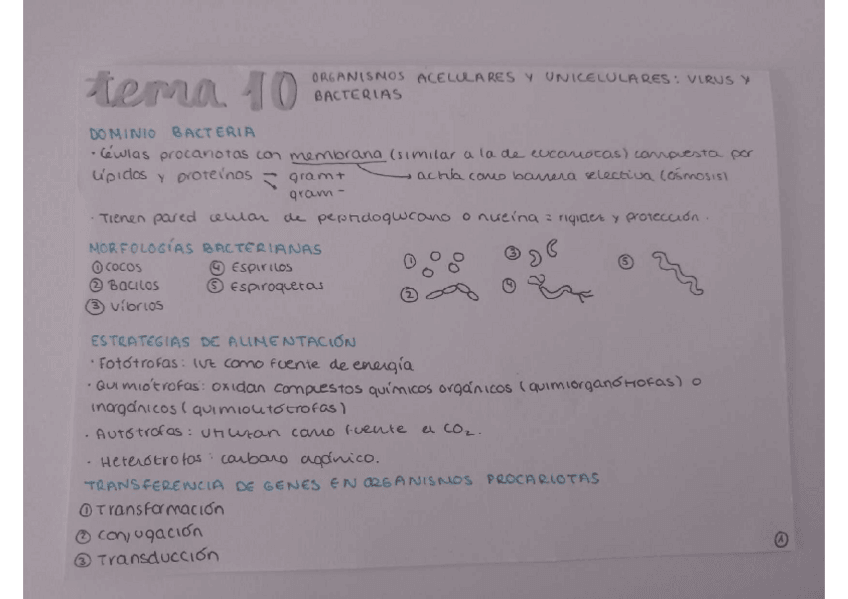 tema 10 ORGANISMOS ACELULARES Y UNICELULARES: VIRUS Y
BACTERIAS
DOMINIO BACTERIA
· Células procariotas con membrana (similar a la de eucariotas) compuesta por
lípidos y proteínas → gram+ → actúa como barrera selectiva (ósmosis)
→ gram-
· Tienen pared celular de peptidoglucano o mureína = rigidez y protección.
MORFOLOGÍAS BACTERIANAS
① COCOS ④ Espirilos
② Bacilos ⑤ Espiroquetas
③ Vibrios
① ② ③ ④ ⑤
ESTRATEGIAS DE ALIMENTACIÓN
· Fotótrofas: luz como fuente de energía
· Quimiótrofas: oxidan compuestos químicos orgánicos (quimiorganótrofas) o
inorgánicos (quimiolitótrofas)
· Autótrofas: utilizan como fuente el CO₂.
· Heterótrofas: carbono orgánico.
TRANSFERENCIA DE GENES EN ORGANISMOS PROCARIOTAS
① Transformación
② Conjugación
③ Transducción
①